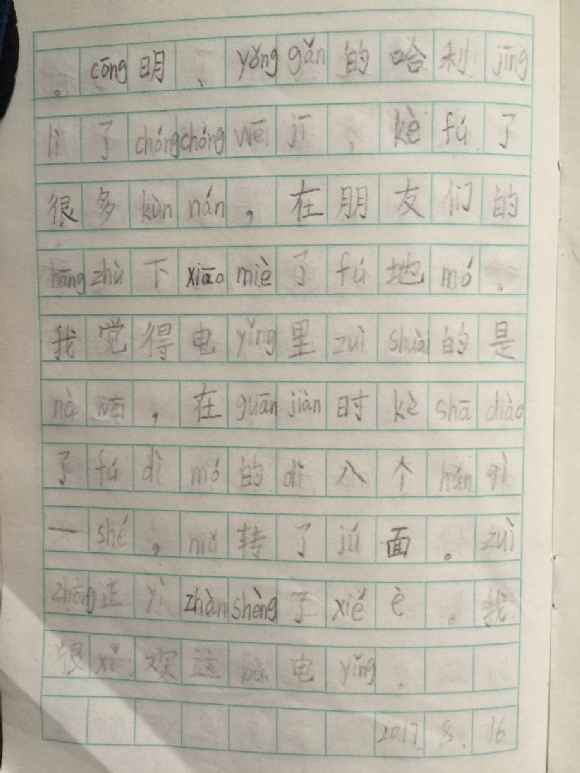 。cōng明、yǒng gǎn的哈利jīng
lì了chóng chóng wēi jī，kè fú了
很多kùn nán，在朋友们的
bāng zhù下xiāo miè了fú地mó。
我觉得电yǐng里zuì shuài的是
nà wēi，在guān jiàn时kè shā diào
了fú dì mó的dì八个hún qì
一shé，niǔ转了jú面。zuì
zhōng正yì zhàn shèng了xié è。我
很xǐ欢这bù电yǐng。
2017.8.16